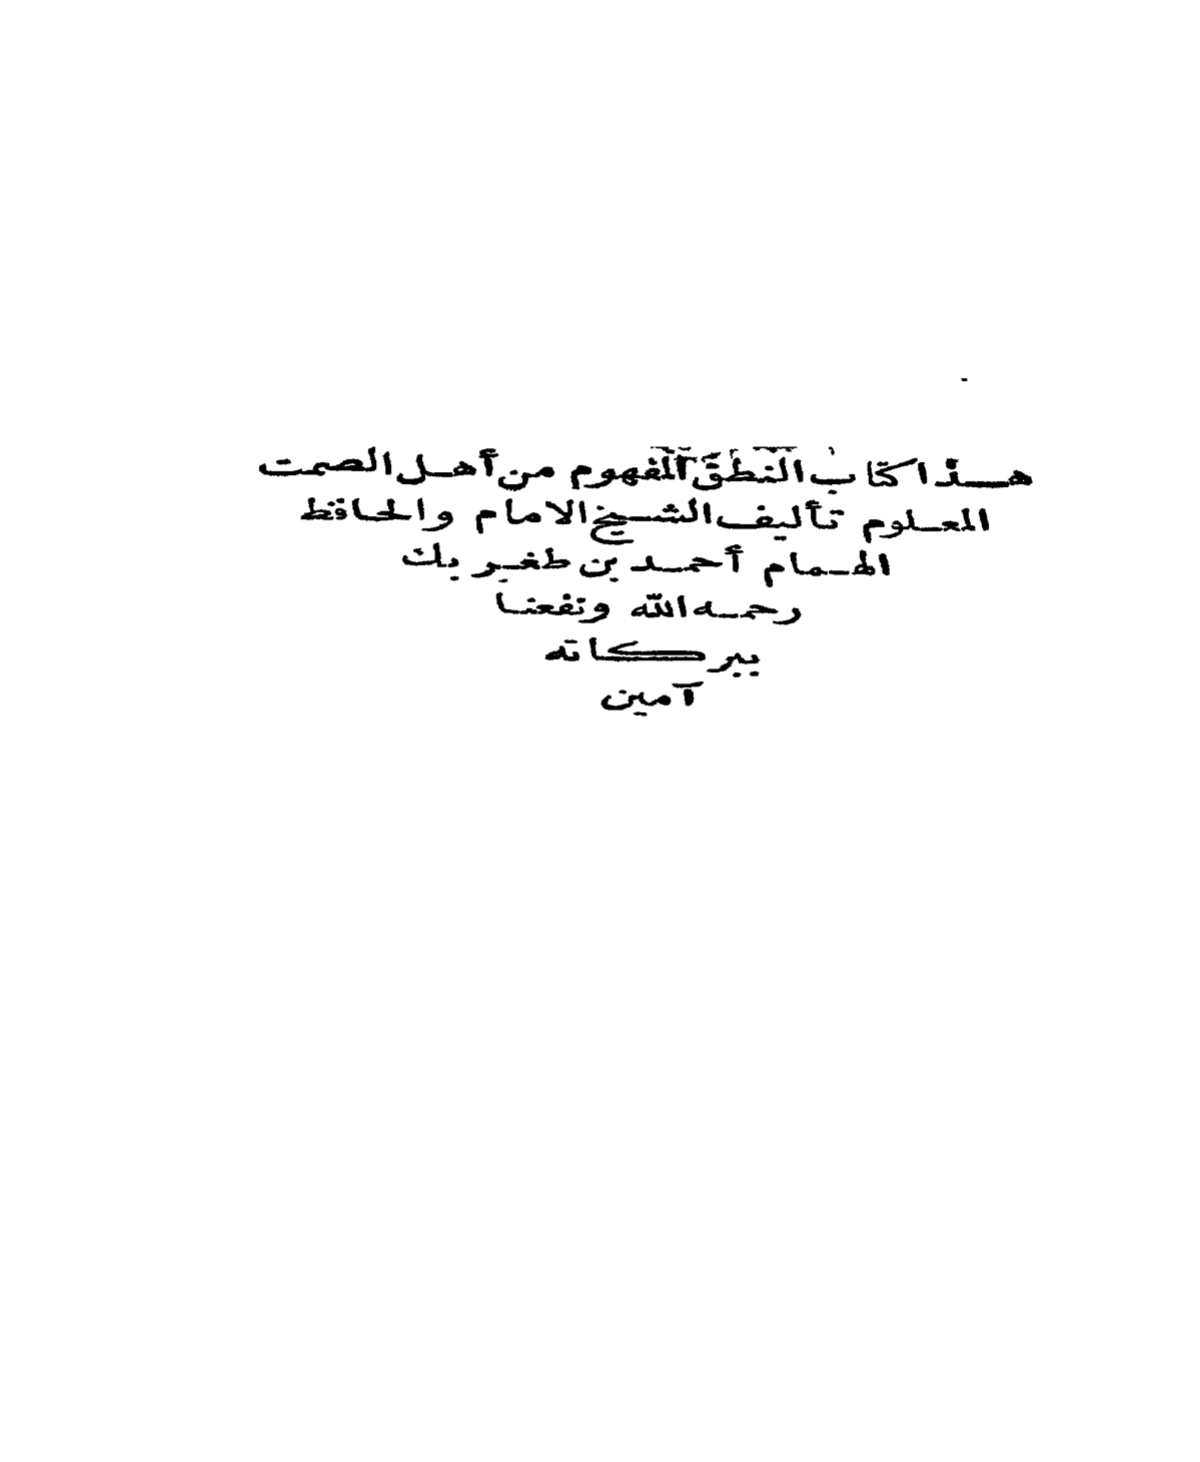 هذا كتاب النطق المفهوم من أهل الصمت
المعلوم تأليف الشيخ الامام والحافظ
الهمام أحمد بن طغر بك
رحمه الله ونفعنا
ببركاته
آمين